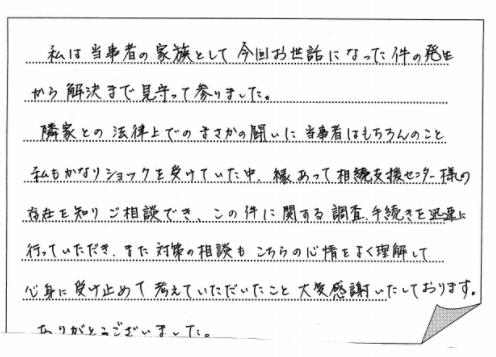 私は当事者の家族として今回お世話になった件の発生
から解決まで見守って参りました。
隣家との法律上でのまさかの闘いに当事者はもちろんのこと
私もかなりショックを受けていた中、縁あって相続支援センター様の
存在を知りご相談でき、この件に関する調査、手続きを迅速に
行っていただき、また対策の相談もこちらの心情をよく理解して
心身に受け止めて考えていただいたこと大変感謝いたしております。
ありがとうございました。